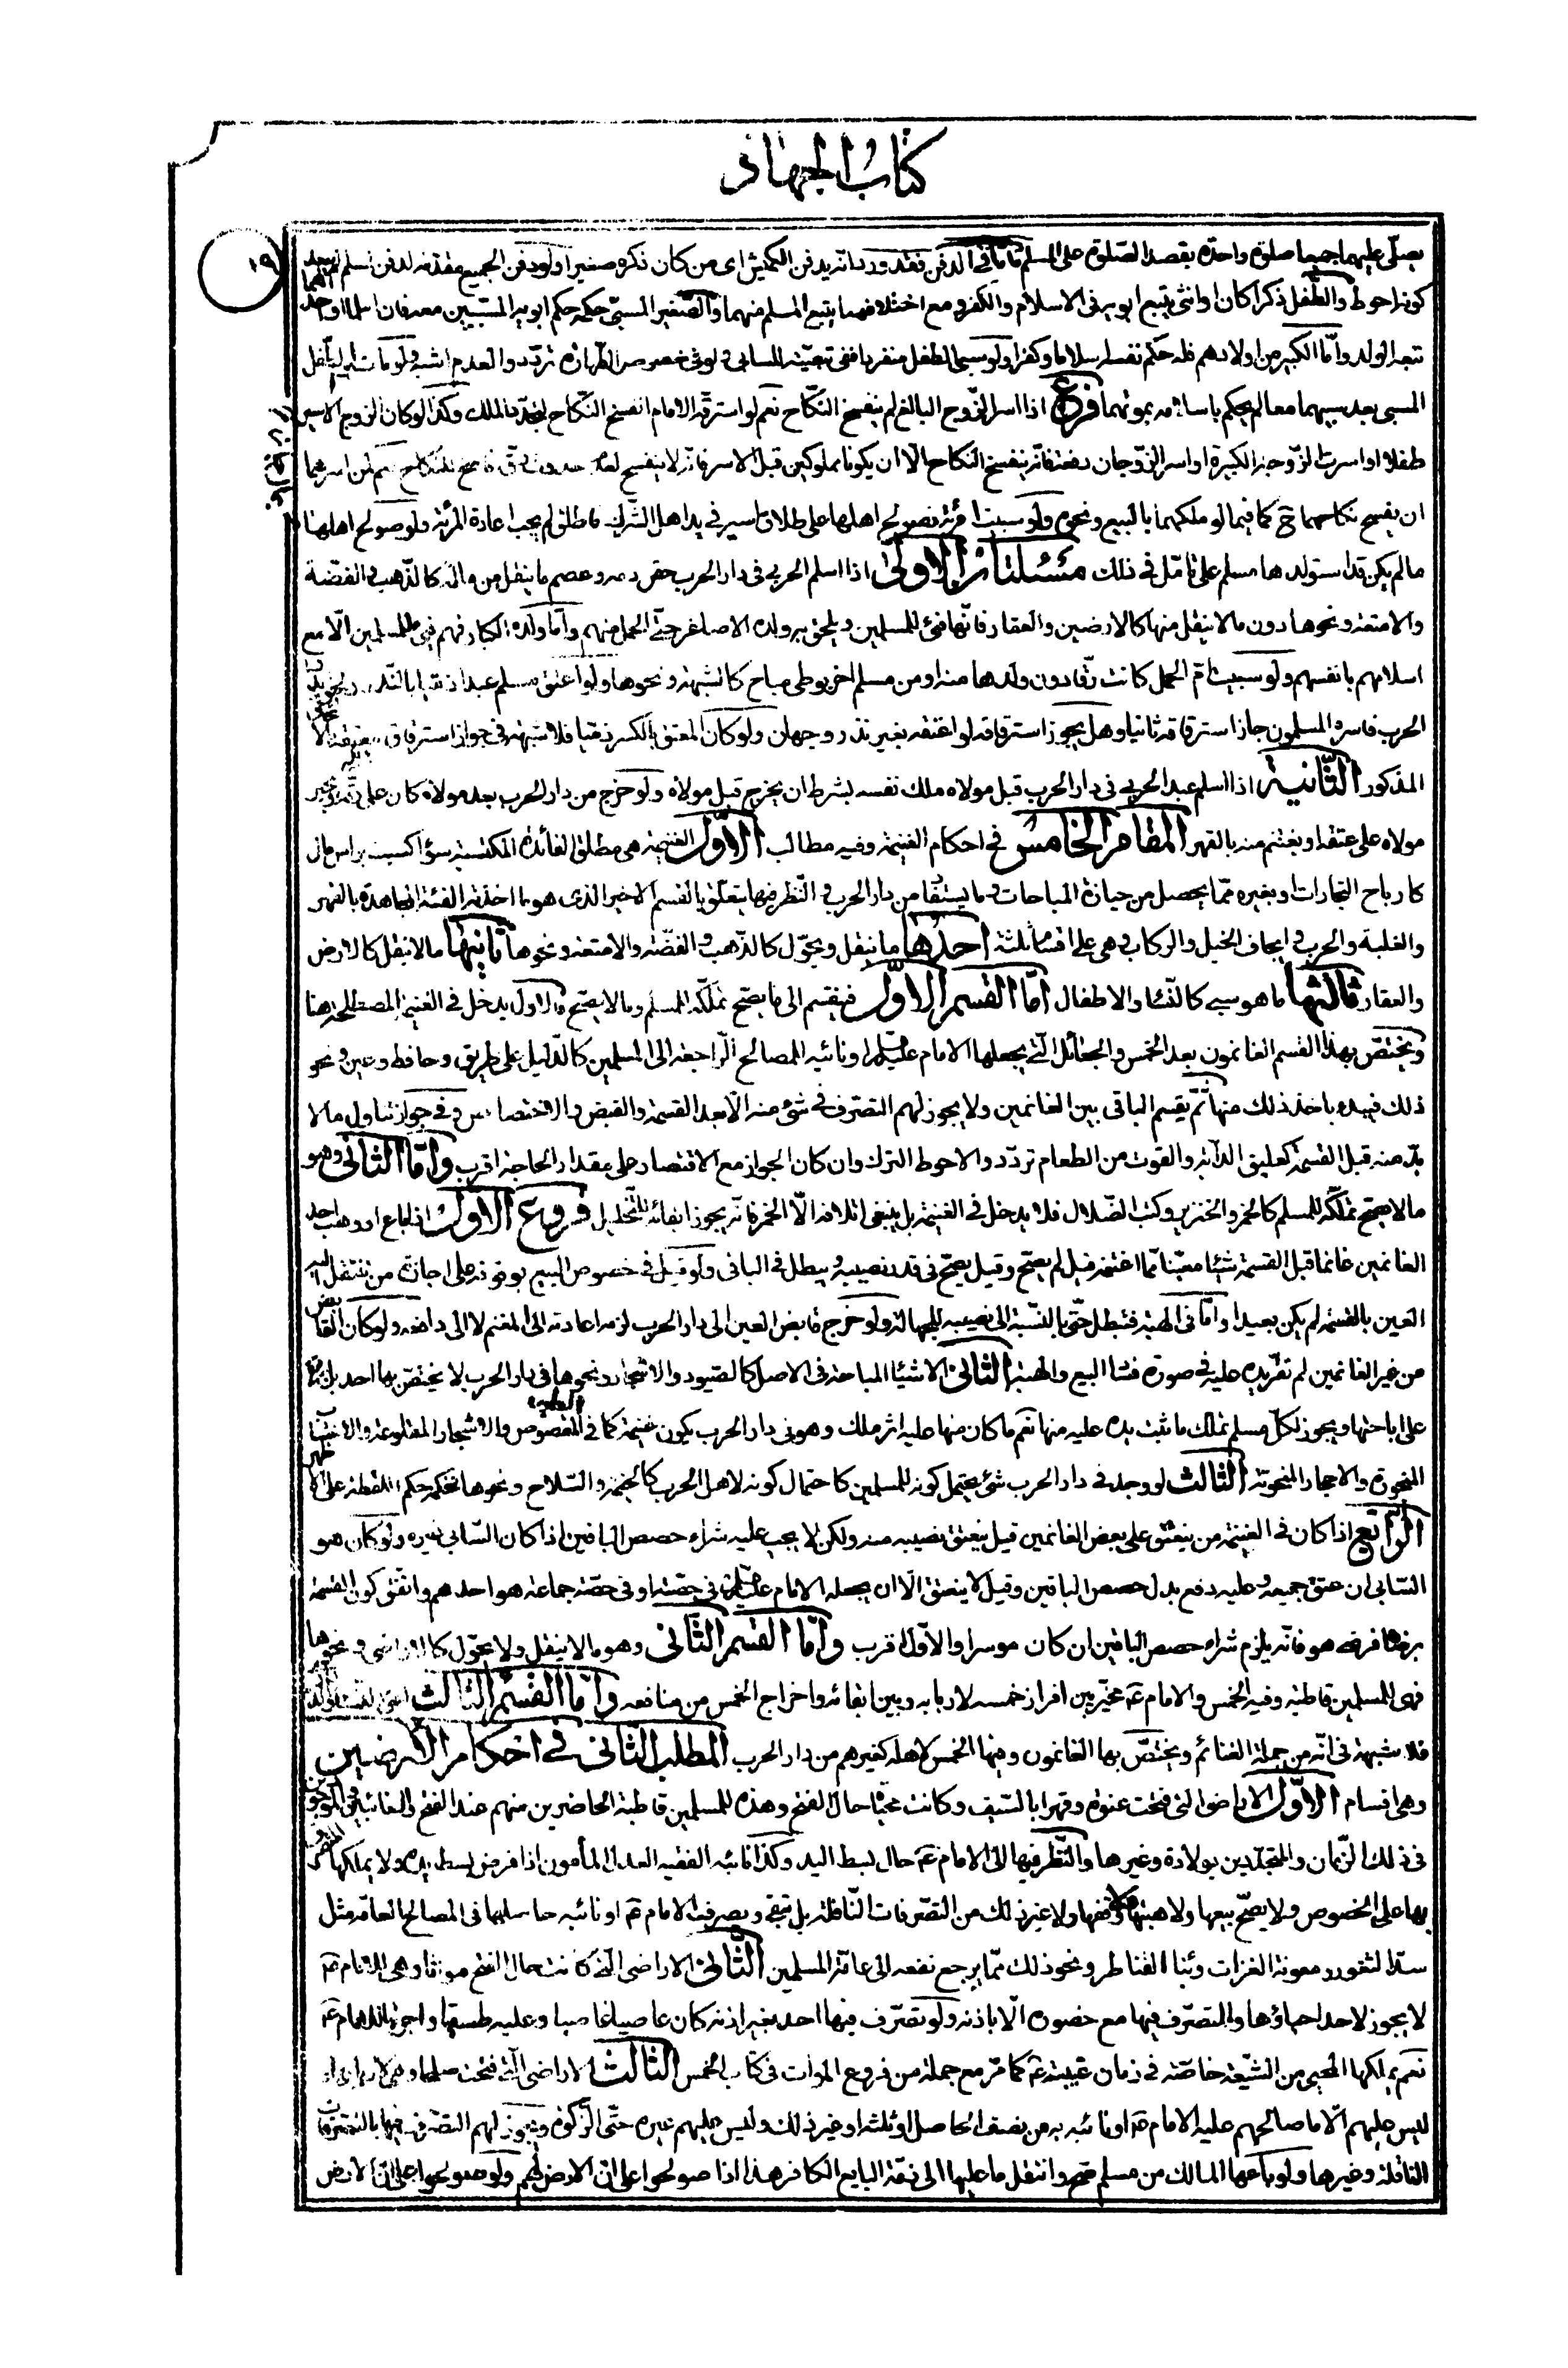 كتاب الجهاد
١٩
يصلّى عليهما جميعا صلوة واحدة بقصد الصّلوة على المسلم وامّا فى الدفن فقد ورد انه يدفن الكميش اى من كان ذكره صغيرا ولو دفن الجميع مقدمة لدفن المسلم لم يبعد
كونه احوط والطّفل ذكرا كان او انثى يتبع ابويه فى الاسلام والكفر ومع اختلافهما يتبع المسلم منهما والصّغير المسبىّ حكمه حكم ابويه المسبيين معه فان اسلما او احدهما
تبعه الولد وامّا الكبير من اولادهم فله حكم نفسه اسلاما وكفرا ولو سبى الطفل منفردا ففى تبعيّته للسابى ولو فى خصوص الطهارة تردّد والعدم اشبه ولو مات ابو الطّفل
المسبى بعد سبيهما معا لم يحكم باسلامه بموتهما فرع اذا اسر الزّوج البالغ لم ينفسخ النّكاح نعم لو استرقّه الامام انفسخ النّكاح لتجدّد الملك وكذا لو كان الزوج الاسير
طفلا او اسرت الزّوجة الكبيرة او اسر الزّوجان دفعة فانّه ينفسخ النكاح الّا ان يكونا مملوكين قبل الاسر فانّه لا ينفسخ لعدم حدوث رق فاسخ للنكاح نعم لمن اسرهما
ان يفسخ نكاحهما ح كما فيما لو ملكهما بالبيع ونحوه ولو سبيت امرئة فصولح اهلها على طلاق اسير فى يد اهل الشّرك فاطلق لم يجب اعادة المرئة ولو صولح اهلها
ما لم يكن قد استولدها مسلم على تامّل فى ذلك مسئلتان الاولى اذا اسلم الحربى فى دار الحرب حقن دمه وعصم ما ينقل من ماله كالذّهب والفضّة
والامتعة ونحوها دون ما لا ينقل منها كالارضين والعقار فانّها فئ للمسلمين ويلحق به ولده الاصاغر حتّى الحمل منهم وامّا ولده الكبار فهم فئ للمسلمين الّا مع
اسلامهم بانفسهم ولو سبيت امّ الحمل كانت رقّا دون ولدها منه او من مسلم اخر بوطى مباح كالشبهة ونحوها ولو اعتق مسلم عبدا ذمّيا بالنّذر ولحق بدار
الحرب فاسره المسلمون جاز استرقاقه ثانيا وهل يجوز استرقاقه لو اعتقه بغير نذر وجهان ولو كان المعتق بالكسر ذمّيا فلا شبهة فى جواز استرقاق معتقه
المذكور الثّانية اذا اسلم عبد الحربى فى دار الحرب قبل مولاه ملك نفسه بشرط ان يخرج قبل مولاه ولو خرج من دار الحرب بعد مولاه كان على رقّه ويجبر
مولاه على عتقه او يغتنم منه بالقهر المقام الخامس فى احكام الغنيمة وفيه مطالب الاوّل الغنيمة هى مطلق الفائدة المكتسبة سواء اكتسبت براس مال
كارباح التجارات او بغيره ممّا يحصل من حيازة المباحات وما يستفا من دار الحرب والنّظر فيها يتعلّق بالقسم الاخير الذى هو ما اخذته الفئة المجاهدة بالقهر
والغلبة والحرب وايجاف الخيل والركاب وهى على اقسام ثلثة احدها ما ينقل ويحوّل كالذّهب والفضّة والامتعة ونحوها ثانيها ما لا ينقل كالارض
والعقار ثالثها ما هو سبى كالنّساء والاطفال امّا القسم الاوّل فينقسم الى ما يصحّ تملّكه للمسلم وما لا يصحّ والاول يدخل فى الغنيمة المصطلحة هنا
ويختصّ بهذا القسم الغانمون بعد الخمس والجعائل الّتى يجعلها الامام عليه السّلم او نائبه للمصالح الّراجعة الى المسلمين كالدّليل على طريق وحافظ وعين ونحو
ذلك فيبدء باخذ ذلك منها ثمّ يقسم الباقى بين الغانمين ولا يجوز لهم التصرّف فى شئ منه الّا بعد القسمة والقبض والاختصاص وفى جواز تناول ما لا
بدّ منه قبل القسمة كعليق الدابّة والقوت من الطعام تردّد والاحوط الترك وان كان الجواز مع الاقتصار على مقدار الحاجة اقرب وامّا الثانى وهو
ما لا يصحّ تملّكه للمسلم كالخمر والخنزير وكتب الضّلال فلا يدخل فى الغنيمة بل ينبغى اتلافه الّا الخمر فانّه يجوز ابقائه للتّخليل فروع الاوّل اذا باع او وهب احد
الغانمين غانما قبل القسمة شيئا معيّنا ممّا اغتنمه قيل لم يصحّ وقيل يصحّ فى قدر نصيبه ويبطل فى الباقى ولو قيل فى خصوص البيع بوقوفه على اجازة من ينتقل اليه
العين بالقسمة لم يكن بعيدا وامّا فى الهبة فتبطل حتّى بالنّسبة الى نصيبه للجهالة ولو خرج قابض العين الى دار الحرب لزمه اعادته الى المغنم لا الى دافعه ولو كان القابض
من غير الغانمين لم تقرّ يده عليه فى صورة فساد البيع والهبة الثانى الاشياء المباحة فى الاصل كالصيود والاشجار ونحوها فى دار الحرب لا يختصّ بها احد بل تبقى
على اباحتها ويجوز لكلّ مسلم تملّك ما تثبت يده عليه منها نعم ما كان منها عليه اثر ملك وهو فى دار الحرب يكون غنيمة كما فى المقصوص والاشجار المقلوعة والاخشاب
المنجورة والاحجار المنحوتة الثالث لو وجد فى دار الحرب شئ يحتمل كونه للمسلمين كاحتمال كونه لاهل الحرب كالخيمة والسّلاح ونحوها فحكمه حكم اللقطة على الاظهر
الرّابع اذا كان فى الغنيمة من ينعتق على بعض الغانمين قيل ينعتق نصيبه منه ولكن لا يجب عليه شراء حصص الباقين اذا كان السّابى غيره ولو كان هو
السّابى انعتق جميعه وعليه دفع بدل حصص الباقين وقيل لا ينعتق الّا ان يجعله الامام عليه السّلم فى حصّته او فى حصّة جماعة هو احدهم واتّفق كون القسمة
برضا فرضه هو فانّه يلزم شراء حصص الباقين ان كان موسرا والاوّل اقرب وامّا القسم الثّانى وهو ما لا ينقل ولا يحوّل كالاراضى ونحوها
فهى للمسلمين قاطبة وفيه الخمس والامام ع مخيّر بين افراز خمسه لاربابه وبين ابقائه واخراج الخمس من منافعه وامّا القسم الثالث
فلا شبهة فى انّه من جملة الغنائم ويختصّ بها الغانمون وفيها الخمس لاهله كغيرهم من دار الحرب المطلب الثّانى فى احكام الارضين
وهى اقسام الاوّل الاراضى التى فتحت عنوة وقهرا بالسّيف وكانت محياة حال الفتح وهذه للمسلمين قاطبة الحاضرين منهم عند الفتح والغائبين والموجودين
فى ذلك الزّمان والمتجدّدين بولادة وغيرها والنّظر فيها الى الامام ع حال بسط اليد وكذا نائبه الفقيه العدل المأمون اذا فرض بسط يده ولا يملكها المتصرف
بها على الخصوص ولا يصحّ بيعها ولا هبتها ولا وقفها ولا غير ذلك من التصّرفات النّاقلة بل تبقى ويصرف الامام ع او نائبه حاصلها فى المصالح العامّة مثل
سدّ الثغور ومعونة الغزات وبناء القناطر ونحو ذلك ممّا يرجع نفعه الى عامّة المسلمين الثّانى الاراضى الّتى كانت حال الفتح مواتا وهى للامام ع
لا يجوز لاحد احياؤها والتصرّف فيها مع حضوره الّا باذنه ولو تصرّف فيها احد بغير اذنه كان عاصيا غاصبا وعليه طسقها واجرتها للامام ع
نعم يملكها المحيى من الشّيعة خاصّة فى زمان غيبته ع كما مرّ مع جملة من فروع الموات فى كتاب الخمس الثالث الاراضى الّتى فتحت صلحا وهى لاربابها و
ليس عليهم الّا ما صالحهم عليه الامام ع او نائبه من نصف الحاصل او ثلثه او غير ذلك وليس عليهم غيره حتّى الزّكوة ويجوز لهم التصرّف فيها بالتصرّفات
الناقلة وغيرها ولو باعها المالك من مسلم صحّ وانتقل ما عليها الى ذمّة البايع الكافر هذا اذا صولحوا على انّ الارض لهم ولو صولحوا على انّ الارض